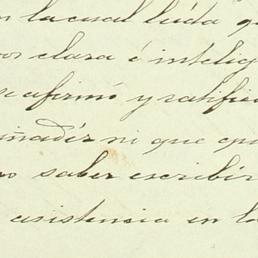 la cual leída q
por clara é intelig
se afirmó y ratific
añadir ni que qu
no saber escribir
asistencia en la